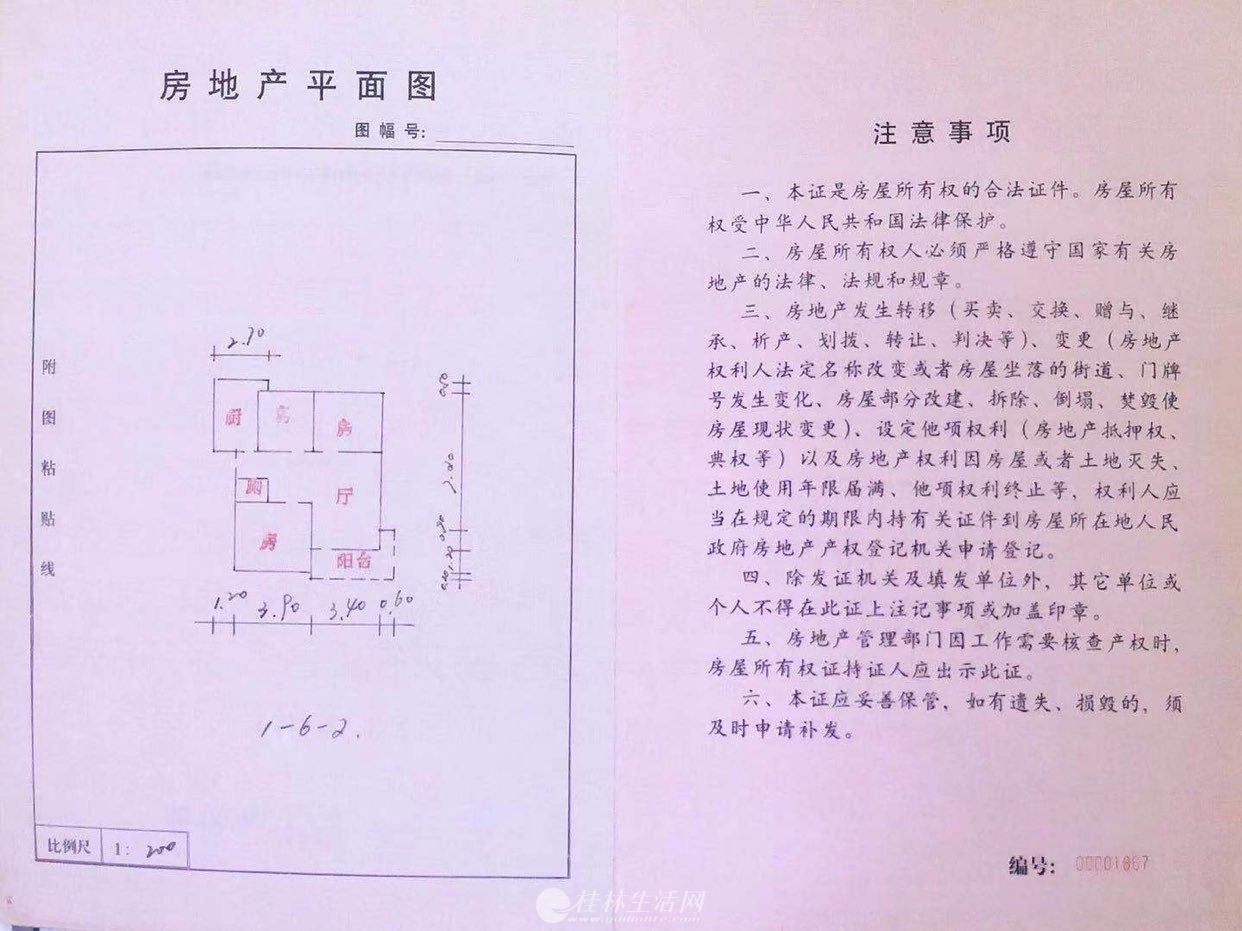 房地产平面图
图幅号:
附图粘贴线
2.70
厨
房
房
厕
厅
房
阳台
1.20 3.90 3.40 0.60
1-6-2.
比例尺 1: 200
注意事项
一、本证是房屋所有权的合法证件。房屋所有
权受中华人民共和国法律保护。
二、房屋所有权人必须严格遵守国家有关房
地产的法律、法规和规章。
三、房地产发生转移（买卖、交换、赠与、继
承、析产、划拨、转让、判决等）、变更（房地产
权利人法定名称改变或者房屋坐落的街道、门牌
号发生变化、房屋部分改建、拆除、倒塌、焚毁使
房屋现状变更）、设定他项权利（房地产抵押权、
典权等）以及房地产权利因房屋或者土地灭失、
土地使用年限届满、他项权利终止等，权利人应
当在规定的期限内持有关证件到房屋所在地人民
政府房地产产权登记机关申请登记。
四、除发证机关及填发单位外，其它单位或
个人不得在此证上注记事项或加盖印章。
五、房地产管理部门因工作需要核查产权时，
房屋所有权证持证人应出示此证。
六、本证应妥善保管，如有遗失、损毁的，须
及时申请补发。
编号:
桂林生活网